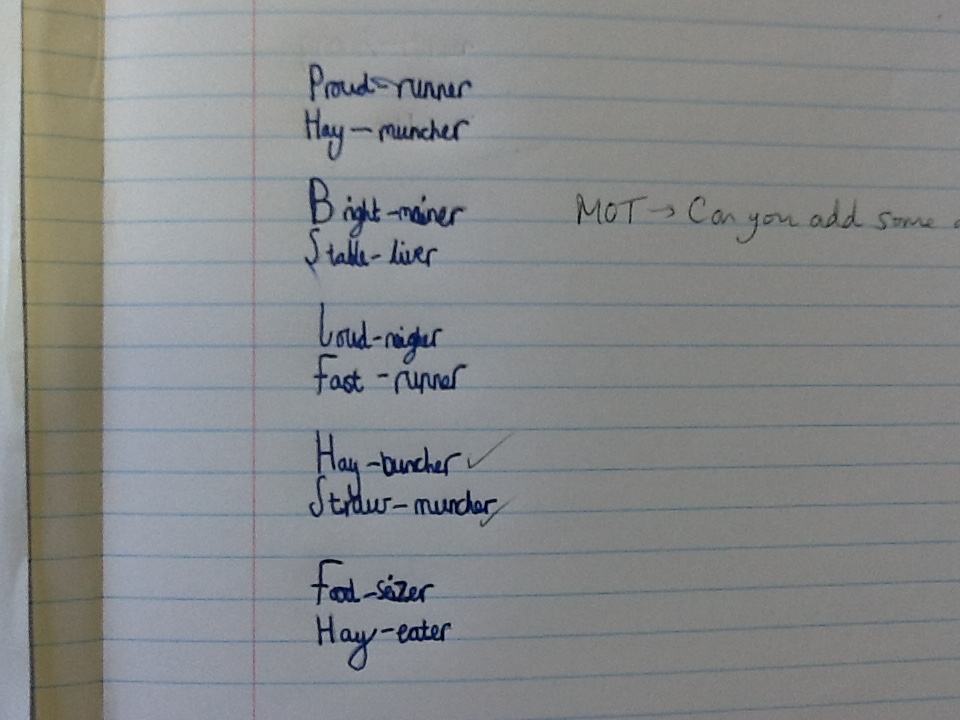 Proud-runner
Hay-muncher
Bright-mainer MOT → Can you add some
Stable-liver
Loud-neigher
Fast-runner
Hay-buncher
Straw-muncher
Food-seizer
Hay-eater